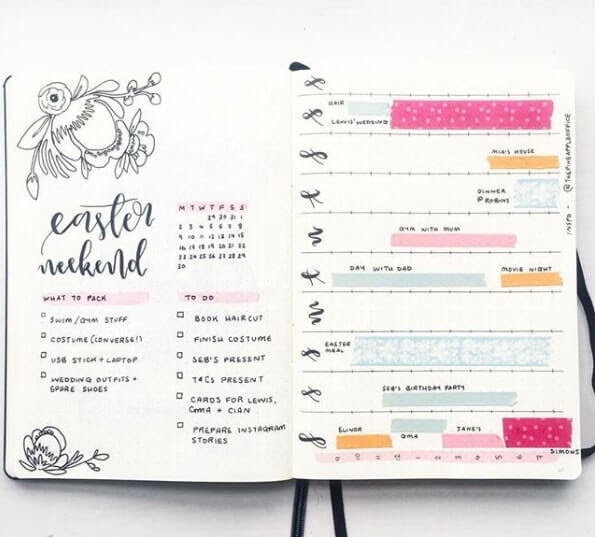 easter
weekend
M T W T F S S
29 30 31 1
2 3 4 5 6 7 8
9 10 11 12 13 14 15
16 17 18 19 20 21 22
23 24 25 26 27 28 29
30
WHAT TO PACK
SWIM/GYM STUFF
COSTUME (CONVERSE!)
USB STICK + LAPTOP
WEDDING OUTFITS +
SPARE SHOES
TO DO
BOOK HAIRCUT
FINISH COSTUME
SEB'S PRESENT
T&C'S PRESENT
CARDS FOR LEWIS,
GMA + CIAN
PREPARE INSTAGRAM
STORIES
HAIR
LEWIS' WEDDING
MIA'S HOUSE
DINNER
@ ROBINS
GYM WITH MUM
DAY WITH DAD
MOVIE NIGHT
EASTER
MEAL
SEB'S BIRTHDAY PARTY
ELINOR
GMA
JANE'S
SIMONS
INSPO - @THEPINEAPPLEOFFICE